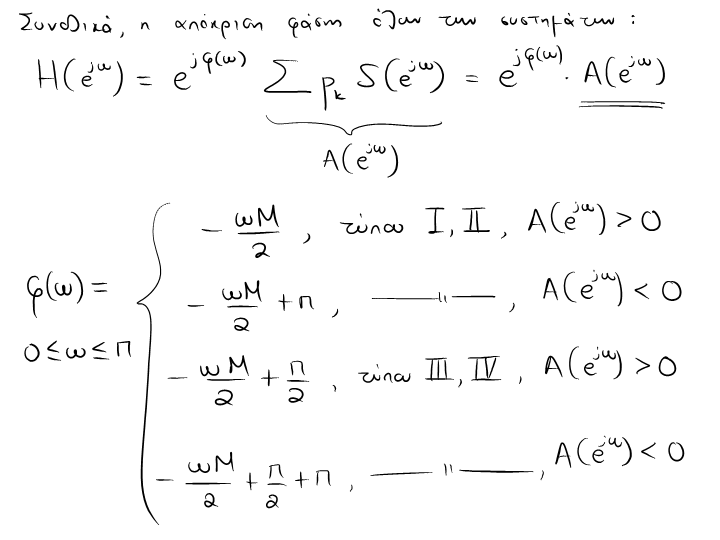 Συνολικά, η απόκριση φάσης όλων των συστημάτων :
H(e^{jω}) = e^{jφ(ω)} ∑ p_k S(e^{jω}) = e^{jφ(ω)} · A(e^{jω})
A(e^{jω})
φ(ω) =
0 ≤ ω ≤ π
- ωM/2 , τύπου I, II , A(e^{jω}) > 0
- ωM/2 + π , —〃— , A(e^{jω}) < 0
- ωM/2 + π/2 , τύπου III, IV , A(e^{jω}) > 0
- ωM/2 + π/2 + π , —〃— , A(e^{jω}) < 0